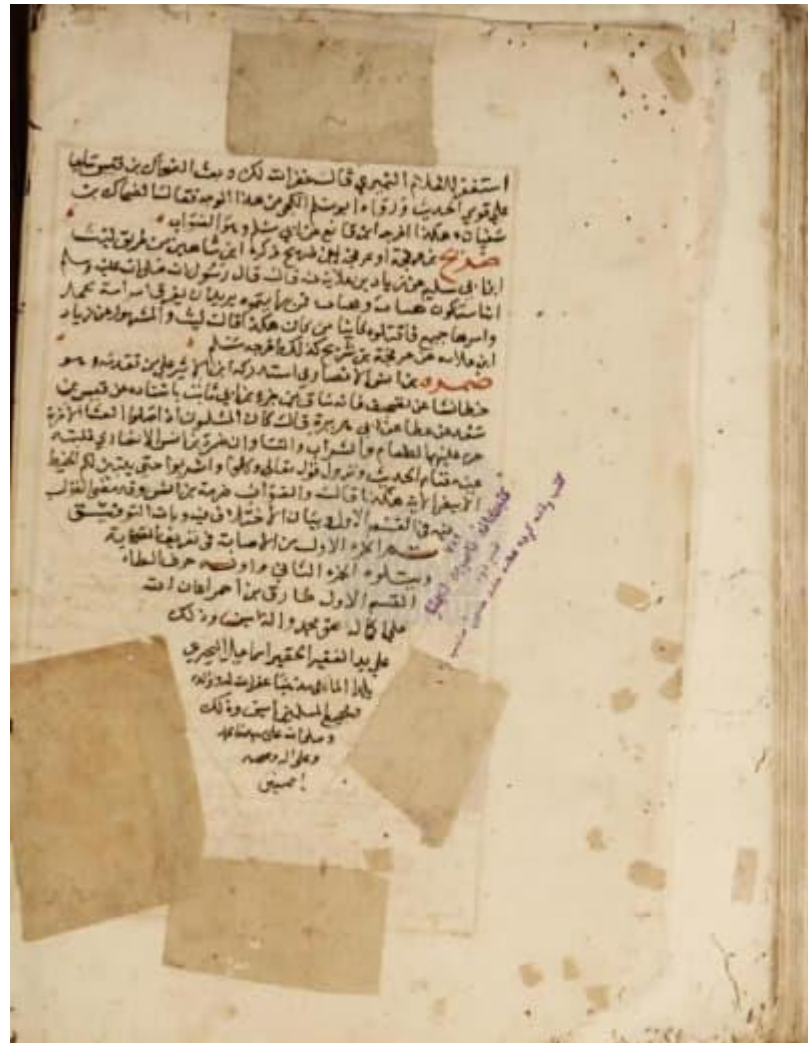 استغفر للغلام النميري قال غفر الله لك وبعث الضحاك بن قيس ساعيا
على قومي الحديث ورواه ابو مسلم الكجي من هذا الوجه فقال الضحاك بن
سفيان هكذا اخرجه ابن قانع عن ابي مسلم وهو الصواب
ضريح بن عرفجة او عرفجة بن ضريح ذكره ابن شاهين من طريق ليث
ابن ابي سليم عن زياد بن علاقة قال قال رسول الله صلى الله عليه وسلم
انها ستكون هنات وهنات فمن رايتموه يريد ان يفرق امر امة محمد
وامرها جميع فاقتلوه كائنا من كان هكذا قال ليث والمشهور عن زياد
ابن علاقة عن عرفجة بن شريح كذلك اخرجه مسلم
ضمرة بن انس الانصاري استدركه ابن الاثير على من تقدمه وهو
خطا نشا عن تصحيف فانه ساق من جزء بن ابي ثابت باسناده عن قيس بن
سعد عن عطا عن ابي هريرة قال كان المسلمون اذا صلوا العشا الاخرة
حرم عليهم الطعام والشراب والنسا وان ضمرة بن انس الانصاري غلبته
عينه فنام الحديث ونزول قوله تعالى وكلوا واشربوا حتى يتبين لكم الخيط
الابيض الاية هكذا قال والصواب صرمة بن انس وقد مضى في القسم الاول وبيان الاختلاف فيه وبالله التوفيق
تم الجزء الاول من الاصابة في تمييز الصحابة
ويتلوه الجزء الثاني واوله حرف الطاء
القسم الاول طارق بن احمر اعان الله
على كماله بحق محمد واله امين وذلك
على يد الفقير الحقير اسماعيل البحري
بلدا المالكي مذهبا غفر الله له ولوالديه
ولجميع المسلمين امين وذلك
وصلى الله على سيدنا محمد
وعلى اله وصحبه
امين